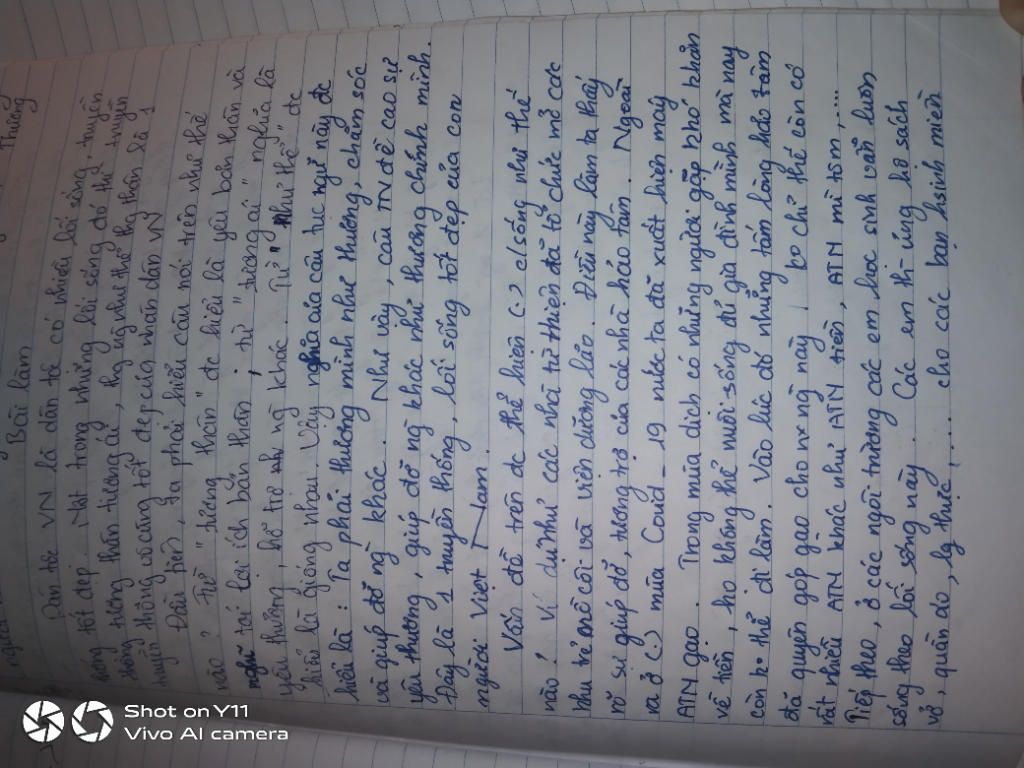 Bài làm
Dân tộc VN là dân tộc có nhiều lối sống, truyền
thống tốt đẹp. Một trong những lối sống đó thể truyền
thống thương thân tương ái, thg ng như thể thg thân là 1
truyền thống vô cùng tốt đẹp của nhân dân VN
Đầu tiên, ta phải hiểu câu nói trên như thế
nào? Từ "thương thân" đc hiểu là yêu bản thân và
nghĩ tới lợi ích bản thân; từ "tương ái" nghĩa là
yêu thương, hỗ trợ ng khác. Từ "như thể" đc
hiểu là giống nhau. Vậy nghĩa của câu tục ngữ này đc
hiểu là: Ta phải thương mình như thương, chăm sóc
và giúp đỡ ng khác. Như vậy, câu TN đề cao sự
yêu thương, giúp đỡ ng khác như thương chính mình.
Đây là 1 truyền thống, lối sống tốt đẹp của con
người Việt Nam.
Vấn đề trên đc thể hiện (-) c/sống như thế
nào? Ví dụ như các nhà từ thiện đã tổ chức mở các
khu trẻ mồ côi và viện dưỡng lão. Điều này làm ta thấy
rõ sự giúp đỡ, tương trợ của các nhà hảo tâm. Ngoài
ra ở (-) mùa Covid-19 nước ta đã xuất hiện máy
ATN gạo. Trong mùa dịch có những người gặp khó khăn
về tiền, họ không thể nuôi sống đủ gia đình mình mà nay
còn ko thể đi làm. Vào lúc đó những tấm lòng hảo tâm
đã quyên góp gạo cho ng này! ko chỉ thế còn có
rất nhiều ATN khác như ATN tiền, ATN mì tôm,...
Tiếp theo, ở các ngôi trường các em học sinh vẫn luôn
sống theo lối sống này. Các em th- ủng hộ sách
vở, quần áo, lg thực,... cho các bạn hsinh miền
Shot on Y11
Vivo AI camera